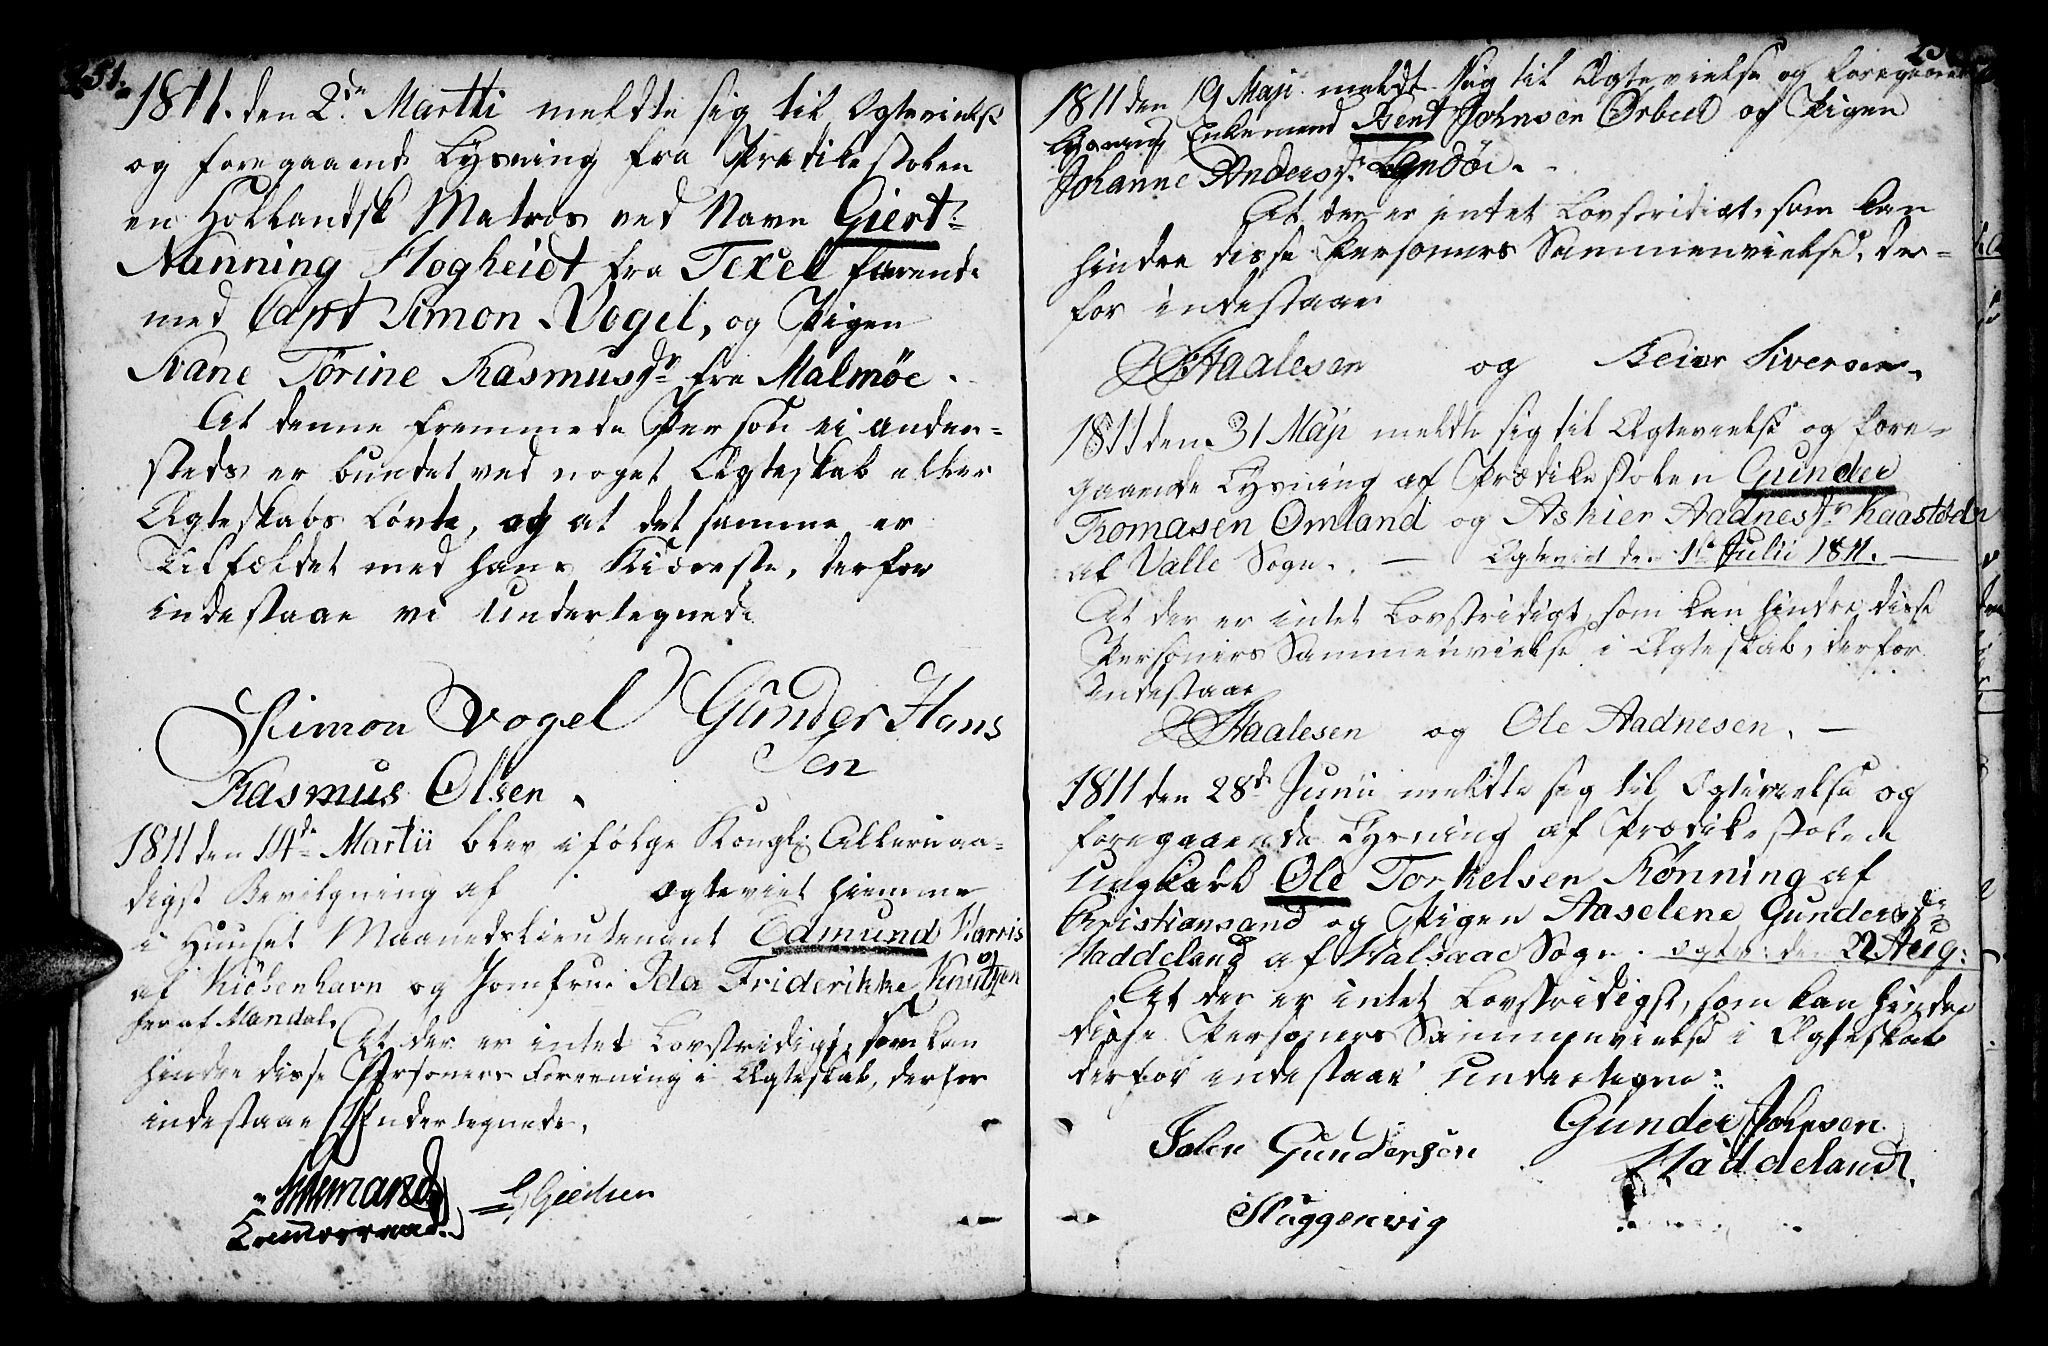 251.
1811. den 2de Martii meldte sig til Ægtevielse
og foregaaende Lysning fra Prædikestolen
en Hollandsk Matros ved Navn Giert
Nanning Hogheidt fra Texel farende
med Capt Simon Vogel, og Pigen
Ane Torine Rasmusdr fra Malmøe.
At denne fremmede Person ei anden-
steds er bundet ved noget Ægteskab eller
Ægteskabs Løvte, og at det samme er
Tilfældet med hans Kiæreste, derfor
indestaae vi Undertegnede
Simon Vogel Gunder Hans
sen
Rasmus Olsen.
1811 den 14de Martii blev ifølge Kongl: Allernaa-
digst Bevilgning af ægteviet hiemme
i Huuset Maanedslieutenant Edmund Harris
af Kiøbenhavn og Jomfrue Ida Friderikke Knutzen
her af Mandal. At der er intet Lovstridigt, som kan
hindre disse Personers Foreening i Ægteskab, derfor
indestaae Undertegnede.
Kammerraad. G Giertsen
1811 den 19 Maji meldt sig til Ægtevielse og foregaaende
Lysning Enkemand Bent Johnsen Orbud og Pigen
Johanne Andersdr. Landøe.
At der er intet Lovstridigt, som kan
hindre disse Personers Sammenvielse, der-
for indestaaer
Haalesen og Reier Siversen.
1811 den 31 Maji meldte sig til Ægtevielse og fore-
gaaende Lysning af Prædikestolen Gunder
Tomasen Omland og Askier Aadnesdr Kaastødn
af Valle Sogn. — Ægteviet den 1ste Julii 1811. —
At der er intet Lovstridigt, som kan hindre disse
Personers Sammenvielse i Ægteskab, derfor
Indestaae
Haalesen og Ole Aadnesen. —
1811 den 28de Junii meldte sig til Ægtevielse og
foregaaende Lysning af Prædikestolen
Ungkarl Ole Torkelsen Rønning af
Christiansand og Pigen Aaselene Gundersdr
Haddeland af Halsaae Sogn. ægtev: den 22 Aug:
At der er intet Lovstridigt, som kan hindre
disse Personers Sammenvielse i Ægteskab
derfor indestaae Undertegne:
John Gundersøn Gunder Johnsen
Haddeland.
Skuggenvig